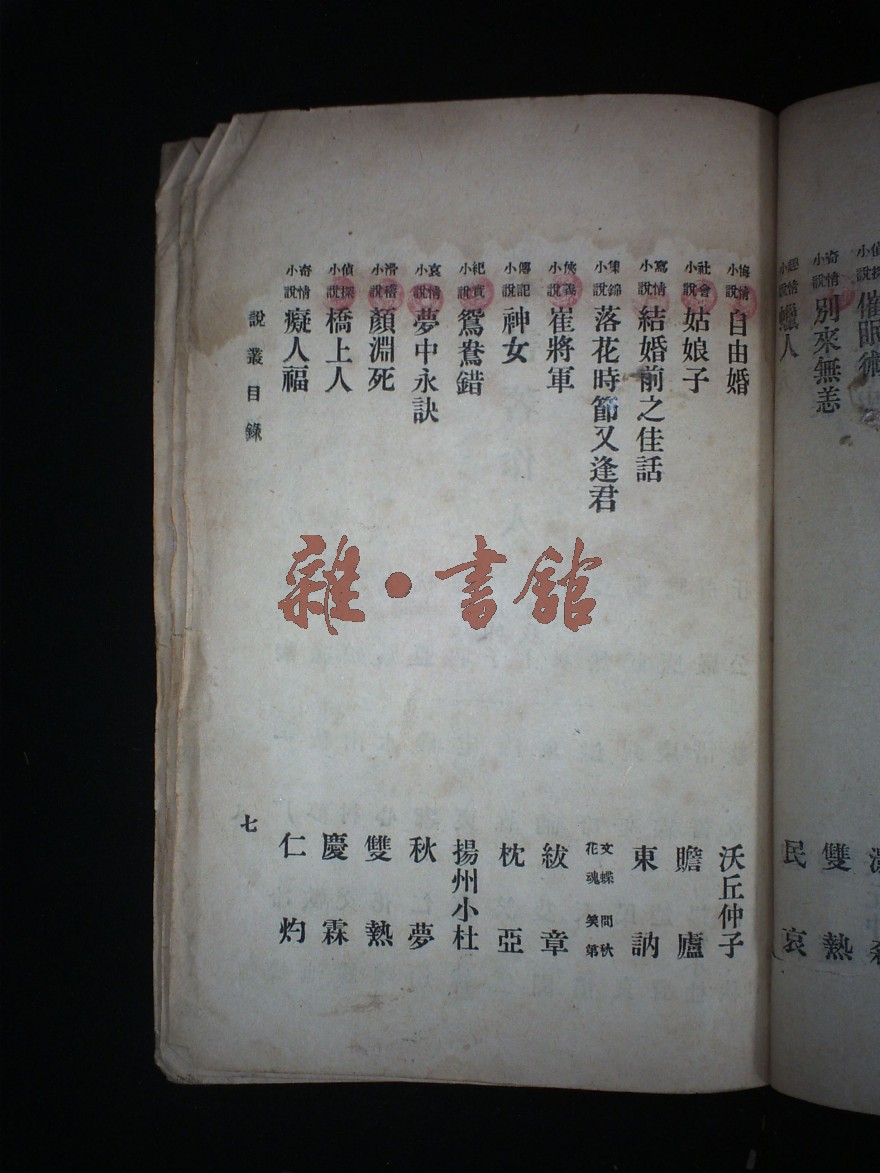 偵探小說 催眠術
奇情小說 別來無恙 雙熱
小說 蠟人 民哀
悔情小說 自由婚 沃丘仲子
社會小說 姑娘子 瞻廬
寫情小說 結婚前之佳話 東訥
集錦小說 落花時節又逢君 文蝶 問秋 花魂 笑第
俠義小說 崔將軍 紱章
傳記小說 神女 枕亞
紀實小說 鴛鴦錯 揚州小杜
哀情小說 夢中永訣 秋夢
滑稽小說 顏淵死 雙熱
偵探小說 橋上人 慶霖
奇情小說 癡人福 仁灼
說叢目錄 七
雜·書館